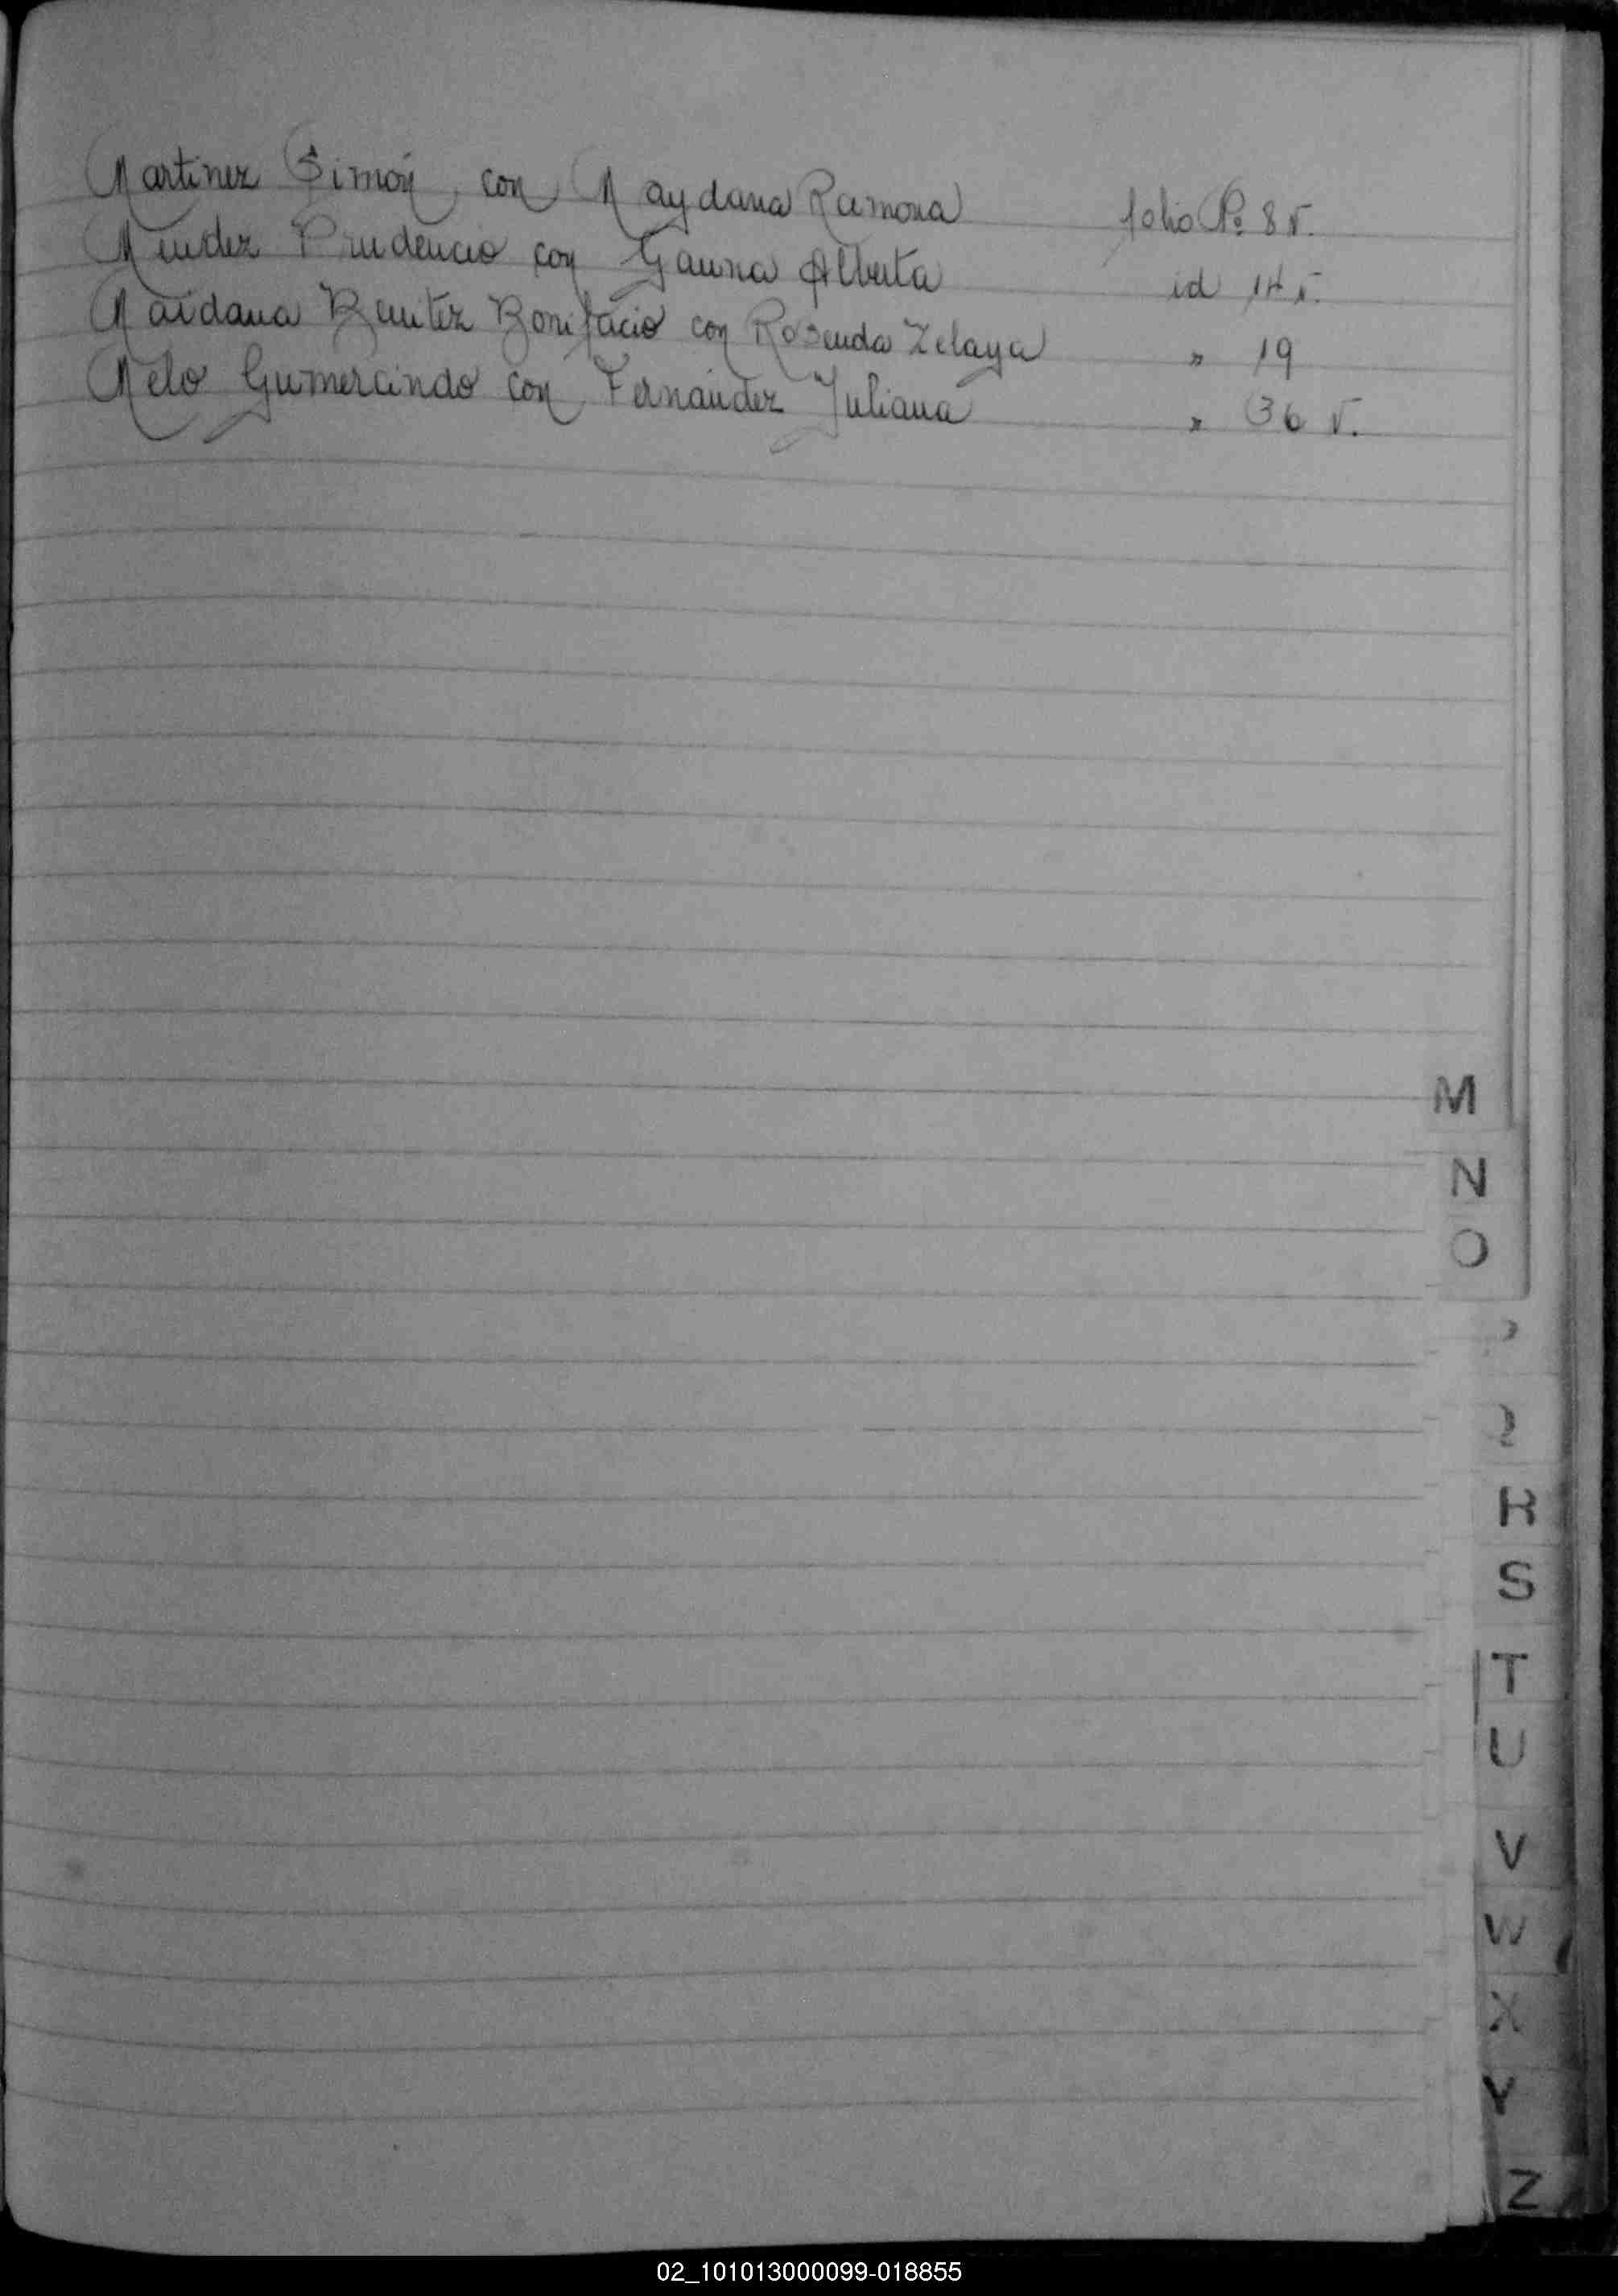 Martinez Simón con Maydana Ramona folio Nº 8 v.
Mendez Prudencio con Gauna Alberta id 14 v.
Maidana Benitez Bonifacio con Rosenda Zelaya " 19
Melo Gumercindo con Fernández Juliana " 36 v.
M
N
O
R
S
T
U
V
W
X
Y
Z
02_101013000099-018855